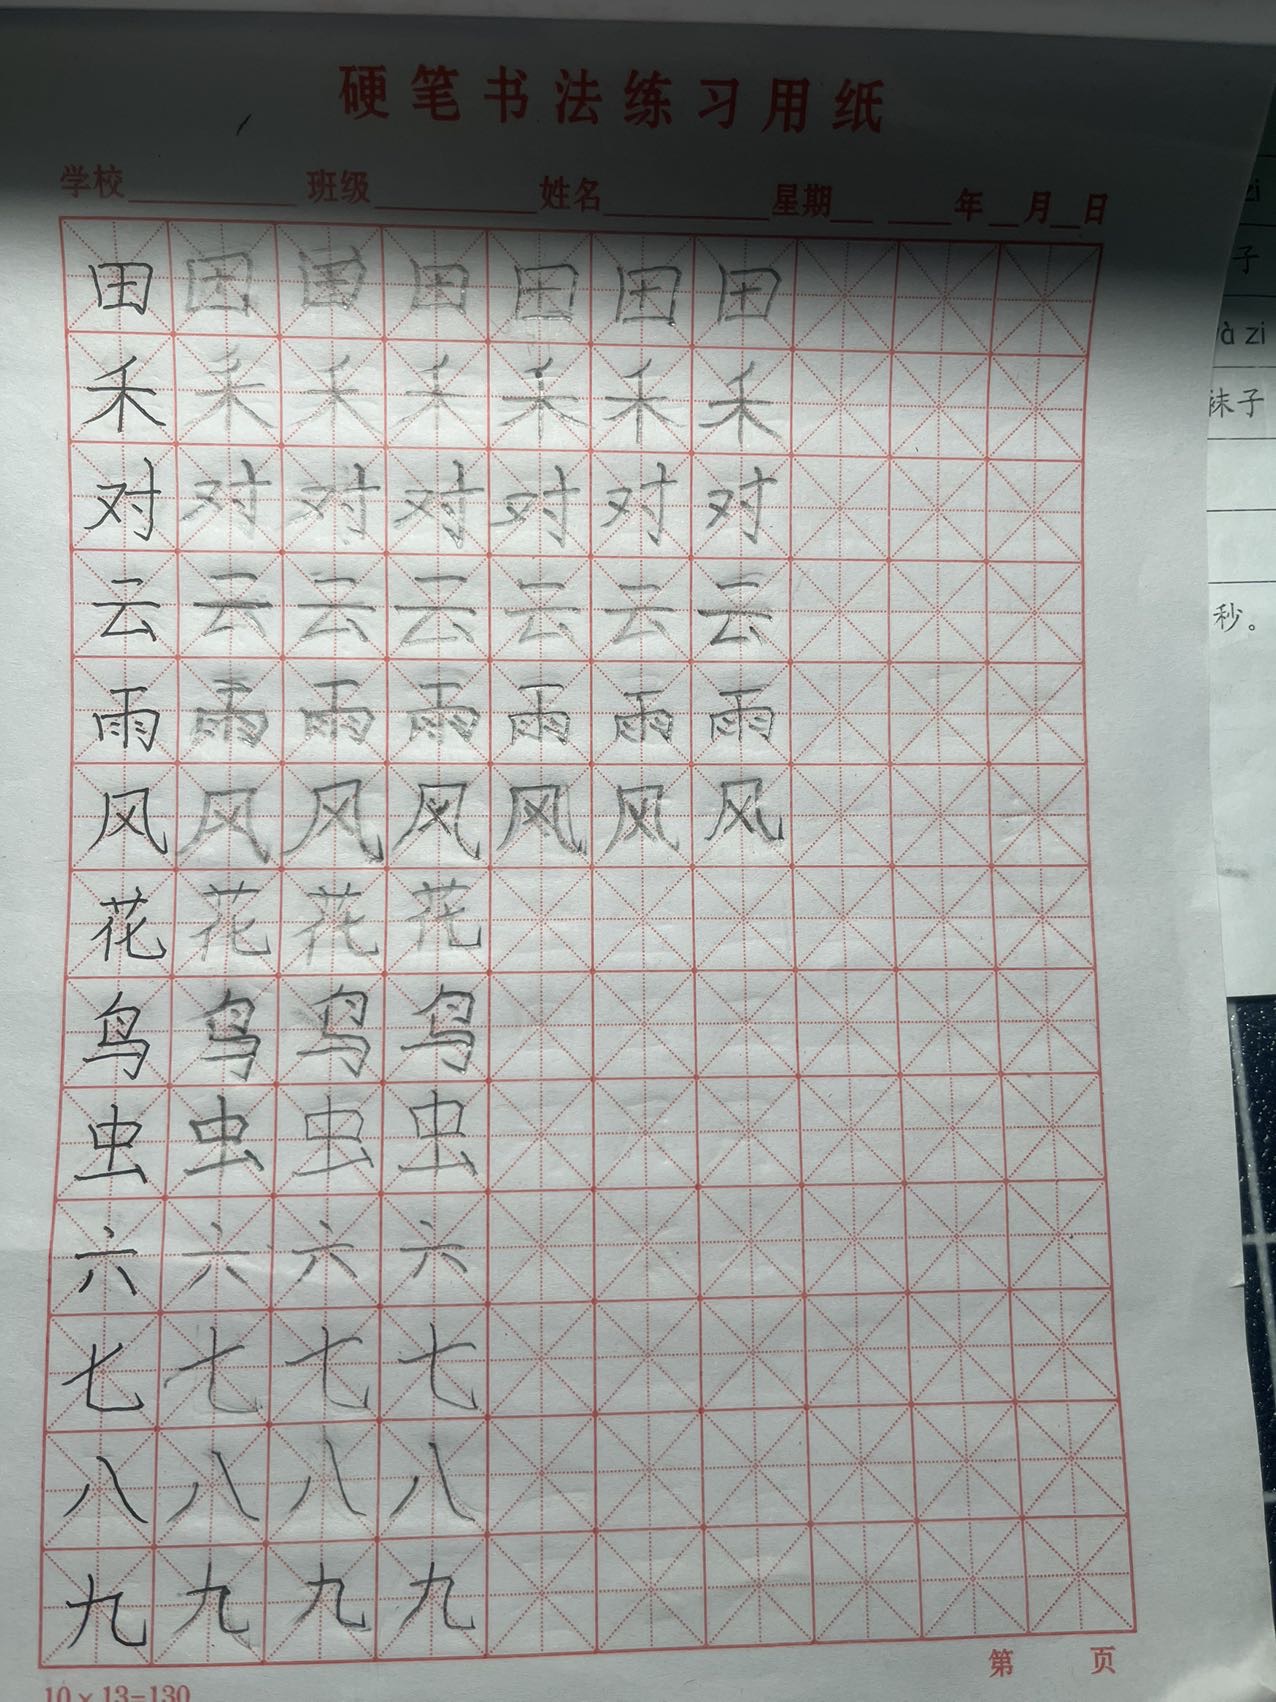 硬笔书法练习用纸
学校 班级 姓名 星期 年 月 日
田 田 田 田 田 田 田
禾 禾 禾 禾 禾 禾 禾
对 对 对 对 对 对 对
云 云 云 云 云 云 云
雨 雨 雨 雨 雨 雨 雨
风 风 风 风 风 风 风
花 花 花 花
鸟 鸟 鸟 鸟
虫 虫 虫 虫
六 六 六 六
七 七 七 七
八 八 八 八
九 九 九 九
第 页
10×13=130
zi
子
à zi
袜子
秒。